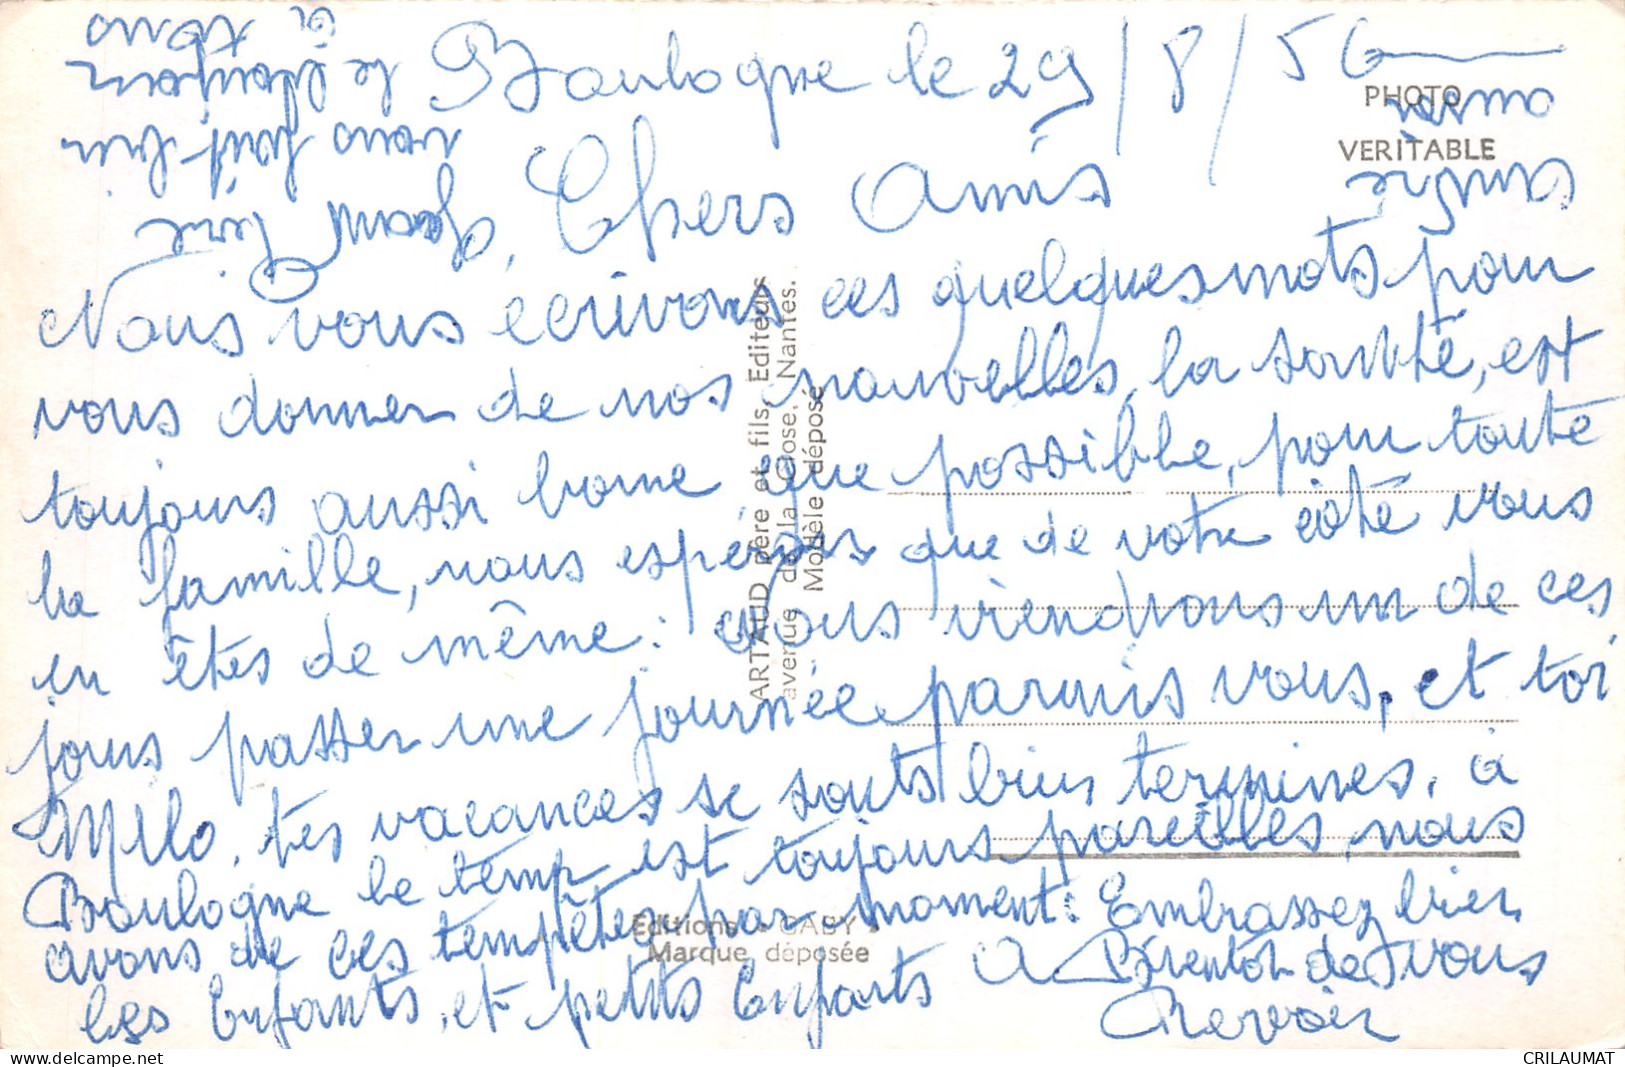 Boulogne le 29/8/56
Chers Amis
Nous vous ecrivons ces quelques mots pour
vous donner de nos nouvelles, la santé, est
toujours aussi bonne que possible, pour toute
la famille, nous espérons que de votre côté vous
en êtes de même : Nous viendrons un de ces
jours passer une journée parmis vous, et toi
Milo, tes vacances se sonts bien termines, à
Boulogne le temp est toujours pareilles, nous
avons de ces tempêtes par moment : Embrassez bien
les Enfants, et petits Enfants A Bientôt de vous
Revoir
vous fait bien
le bonjour
à
tous
PHOTO
VERITABLE
ARTAUD père et fils, Editeurs
avenue de la Close, Nantes.
Modèle déposé
Editions "GABY"
Marque déposée
CRILAUMAT